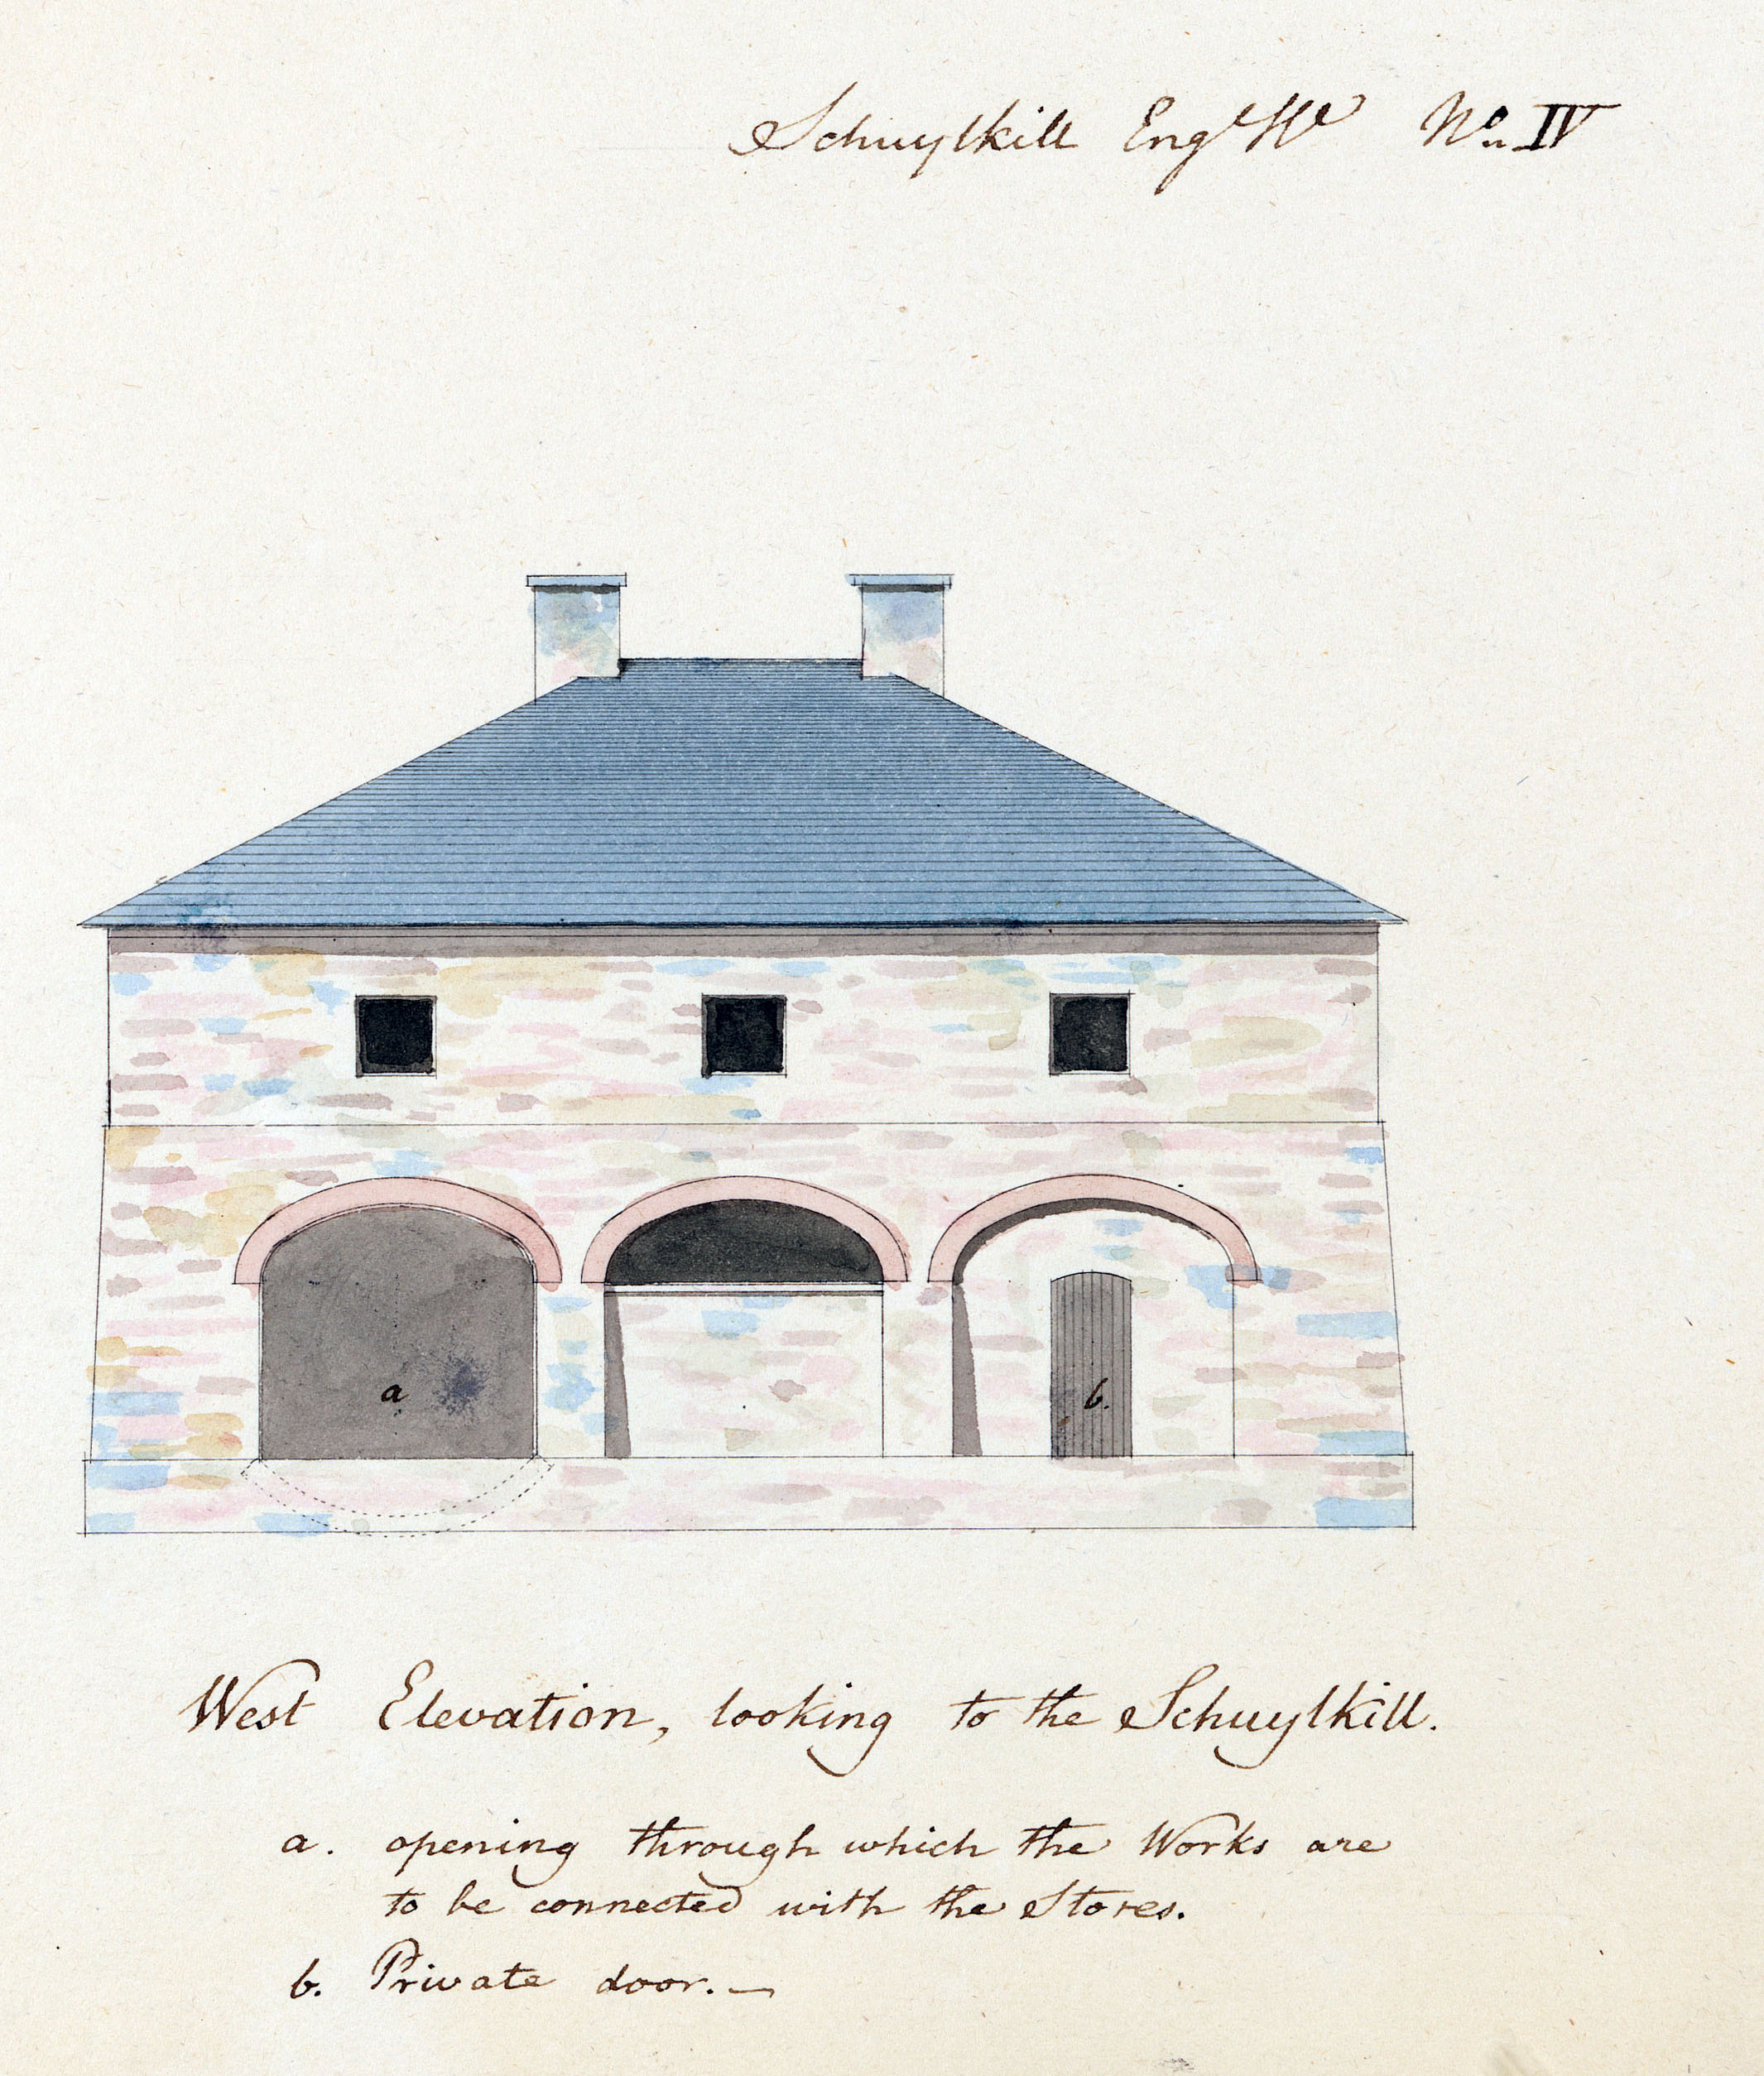 Schuylkill Engᵉ Hᵉ Nᵒ IV
a
b.
West Elevation, looking to the Schuylkill.
a. opening through which the Works are
to be connected with the Stores.
b. Private door. —